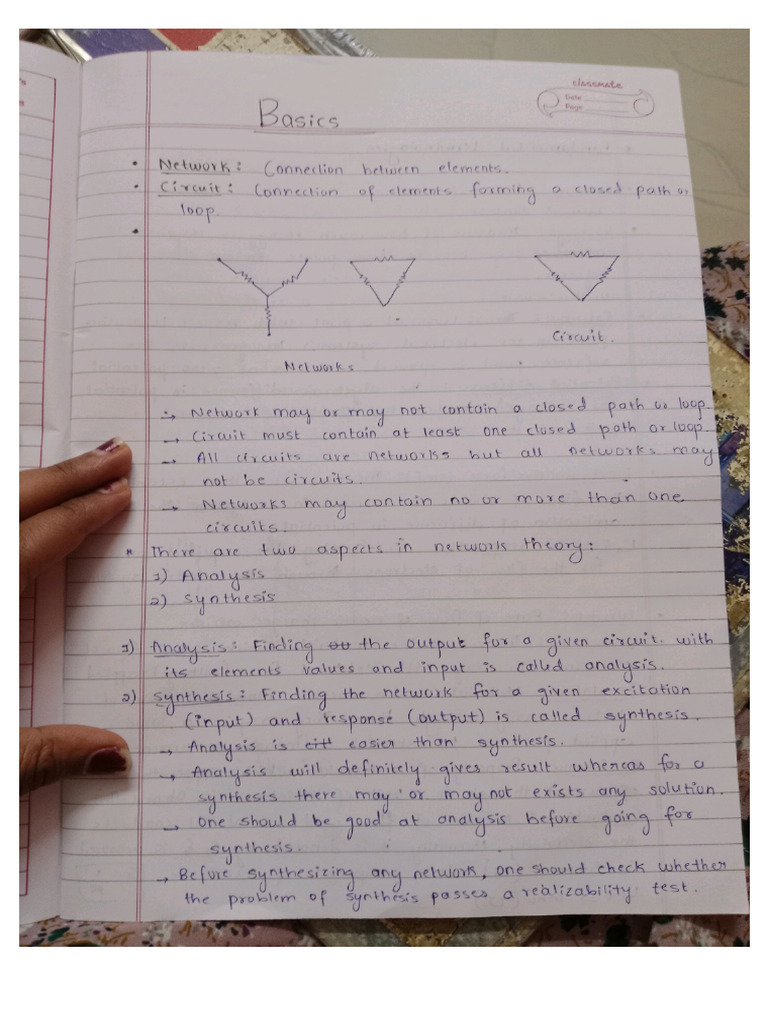 classmate
Date
Page
Basics
• Network: Connection between elements.
• Circuit: Connection of elements forming a closed path or
loop.
•
Circuit.
Networks
→ Network may or may not contain a closed path or loop
→ Circuit must contain at least one closed path or loop.
→ All circuits are networks but all networks may
not be circuits.
→ Networks may contain no or more than one
circuits.
* There are two aspects in network theory:
1) Analysis
2) Synthesis
1) Analysis: Finding the output for a given circuit with
its elements values and input is called analysis.
2) Synthesis: Finding the network for a given excitation
(input) and response (output) is called synthesis.
→ Analysis is easier than synthesis.
→ Analysis will definitely gives result whereas for a
synthesis there may or may not exists any solution.
→ One should be good at analysis before going for
synthesis.
→ Before synthesizing any network, one should check whether
the problem of synthesis passes a realizability test.